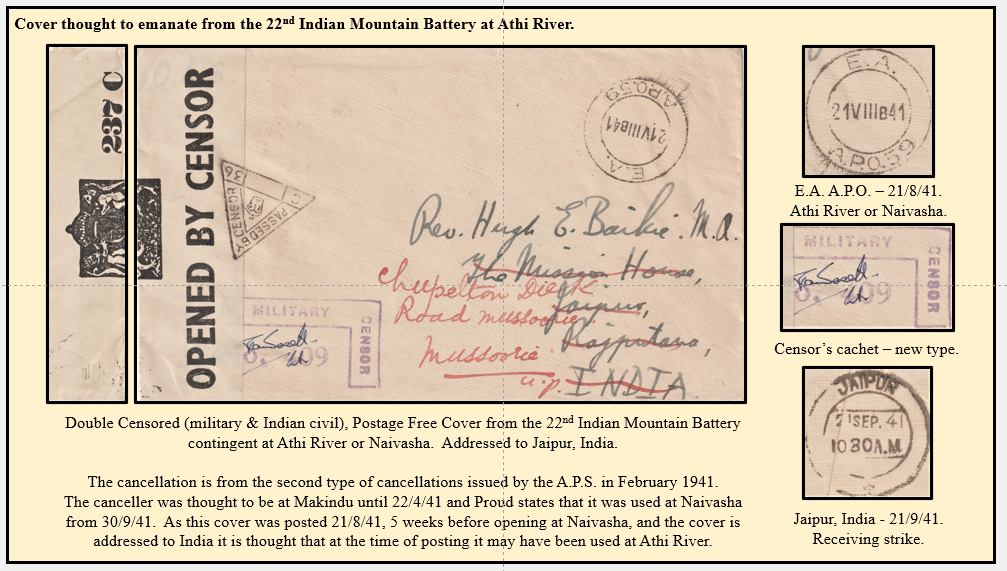 Cover thought to emanate from the 22nd Indian Mountain Battery at Athi River.
237 C
OPENED BY CENSOR
PASSED BY CENSOR
36
E.A.
21VIIIB41
A.P.O.59
Rev. Hugh E. Bailie. M.A.
The Mission House,
Jaipur,
Rajputana,
INDIA
Road Mussoorie
Mussoorie
U.P.
MILITARY
CENSOR
09
E.A.
21VIIIB41
A.P.O.59
E.A. A.P.O. – 21/8/41.
Athi River or Naivasha.
MILITARY
CENSOR
09
Censor’s cachet – new type.
JAIPUR
21SEP.41
1030A.M.
Jaipur, India - 21/9/41.
Receiving strike.
Double Censored (military & Indian civil), Postage Free Cover from the 22nd Indian Mountain Battery
contingent at Athi River or Naivasha. Addressed to Jaipur, India.
The cancellation is from the second type of cancellations issued by the A.P.S. in February 1941.
The canceller was thought to be at Makindu until 22/4/41 and Proud states that it was used at Naivasha
from 30/9/41. As this cover was posted 21/8/41, 5 weeks before opening at Naivasha, and the cover is
addressed to India it is thought that at the time of posting it may have been used at Athi River.